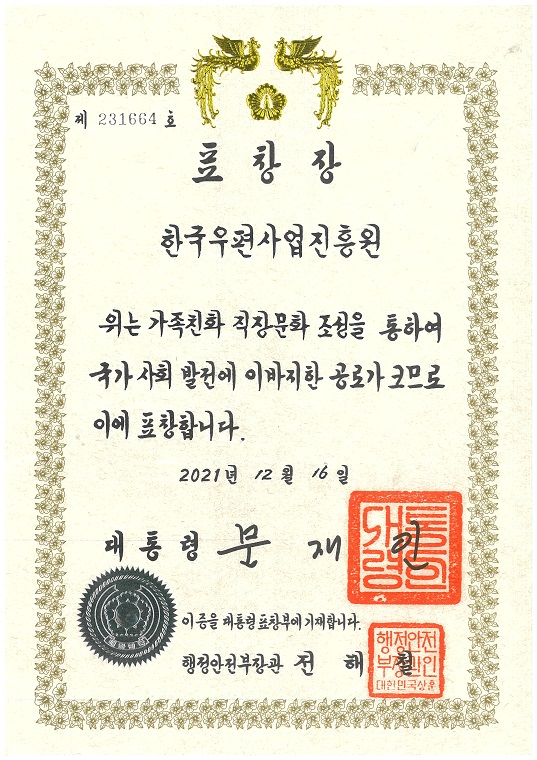 제 231664 호
표창장
한국우편사업진흥원
위는 가족친화 직장문화 조성을 통하여
국가사회 발전에 이바지한 공로가 크므로
이에 표창합니다.
2021년 12월 16일
대통령 문재인
대통령인
이 증을 대통령표창부에 기재합니다.
행정안전부장관 전해철
행정안전
부장관인
대한민국상훈